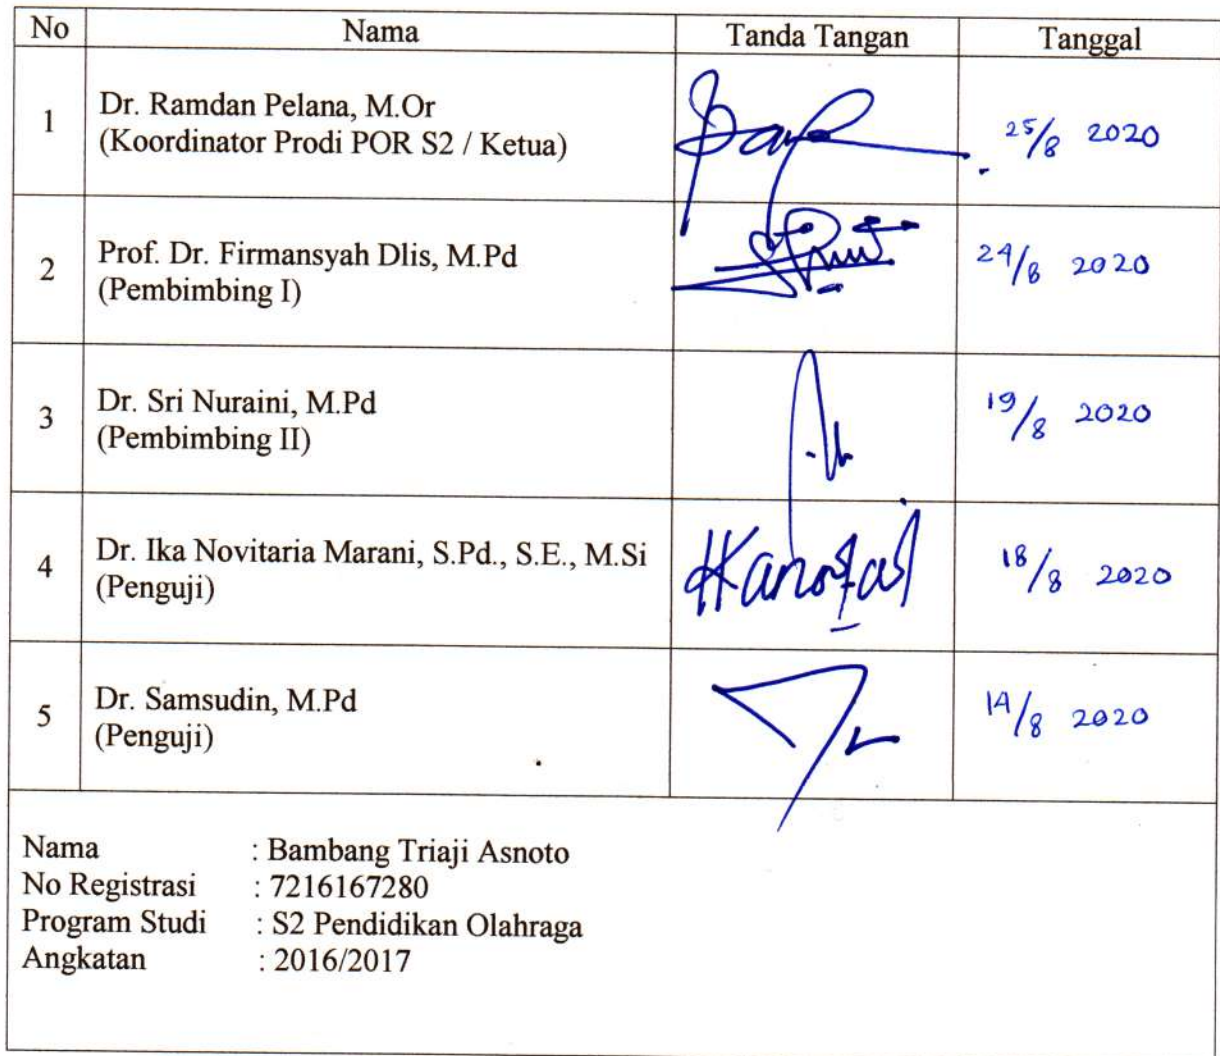 No Nama Tanda Tangan Tanggal
1 Dr. Ramdan Pelana, M.Or
(Koordinator Prodi POR S2 / Ketua)
25/8 2020
2 Prof. Dr. Firmansyah Dlis, M.Pd
(Pembimbing I)
24/8 2020
3 Dr. Sri Nuraini, M.Pd
(Pembimbing II)
19/8 2020
4 Dr. Ika Novitaria Marani, S.Pd., S.E., M.Si
(Penguji)
18/8 2020
5 Dr. Samsudin, M.Pd
(Penguji)
14/8 2020
Nama : Bambang Triaji Asnoto
No Registrasi : 7216167280
Program Studi : S2 Pendidikan Olahraga
Angkatan : 2016/2017